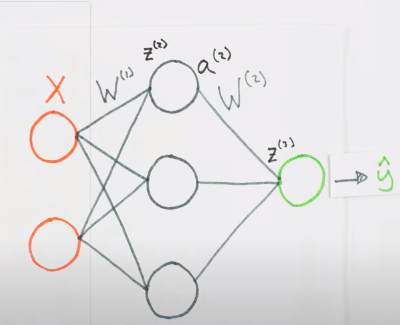 X
W⁽¹⁾
z⁽²⁾
a⁽²⁾
W⁽²⁾
z⁽³⁾
ŷ